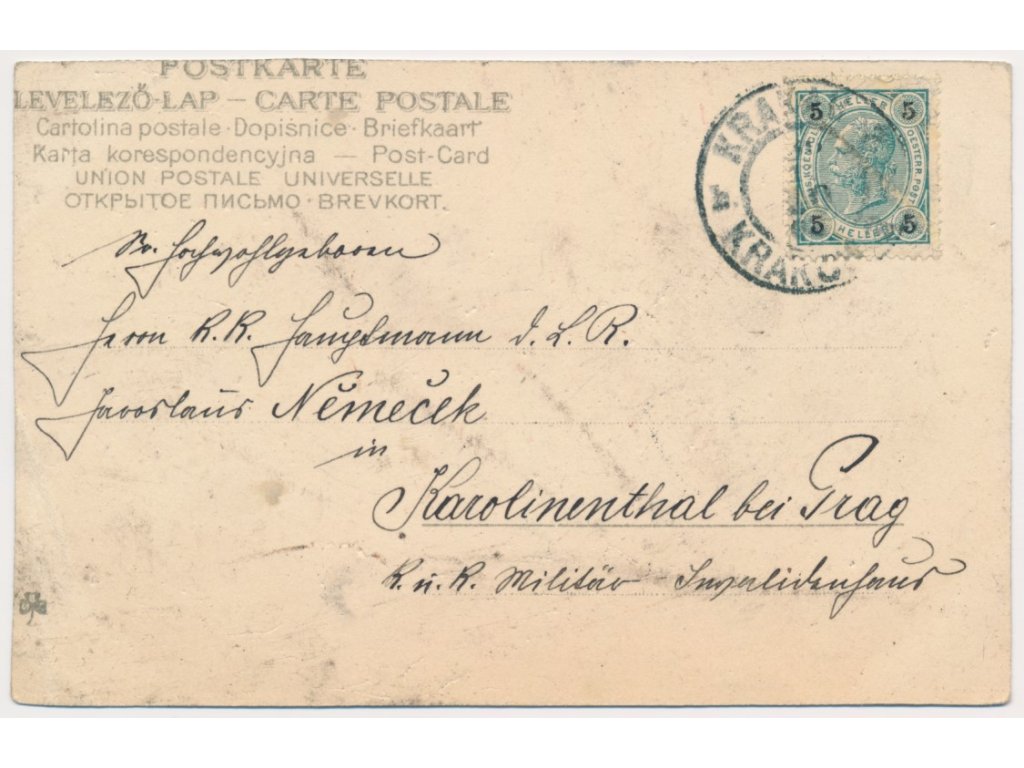 POSTKARTE
LEVELEZŐ-LAP – CARTE POSTALE
Cartolina postale · Dopisnice · Briefkaart
Karta korespondencyjna — Post-Card
UNION POSTALE UNIVERSELLE
ОТКРЫТОЕ ПИСЬМО · BREVKORT.
5 HELLER 5
OESTERR. POST
5 HELLER 5
KRAK
KRAK
Sr. Hochwohlgeboren
Herrn K. K. Hauptmann d. L. R.
Jaroslaus Němeček
in
Karolinenthal bei Prag
K. u. K. Militär Invalidenhaus